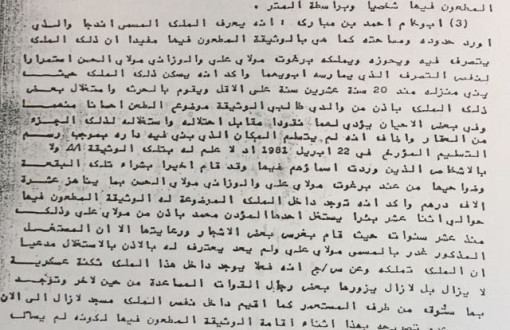 المطعون فيها شخصيا وبراسطة المتر .
(3) ابوكام احمد بن مبارك : انه يعرف الملك المسمى اندجا والذي
اورد حدوده ومساحته كما هي بالوثيقة المطعون فيها مفيدا ان ذلك الملك
يتصرف فيه ويحوزه ويملكه برغوت مولاي علي والوزاني مولاي الحسن استمرارا
لنفس التصرف الذي يمارسه ابويهما واكد انه يسكن ذلك الملك حيث
بنى منزله منذ 20 سنة عشرين سنة على الاقل ويقوم بالحرث واستغلال بعض
ذلك الملك باذن من والدي طالبي الوثيقة موضوع الطعن احيانا منهما
وفي بعض الاحيان يؤدي لهما نقودا مقابل احتلاله واستغلاله لذلك الجزء
من العقار واضاف انه لم يتسلم المكان الذي بنى فيه داره بموجب رسم
التسليم المؤرخ في 22 ابريل 1981 اد لا علم له بتلك الوثيقة ولا
بالاشخاص الذين وردت اساؤهم فيها وقد قام اخيرا بشراء تلك البقعة
وضواحيها من عند برغوت مولاي علي والوزاني مولاي الحسن بما يناهز عشرة
الاف درهم واكد انه توجد داخل الملك المرضوعة له الوثيقة المطعون فيها
حوالي اثنا عشر بئرا يستغل احدها المؤدن محمد باذن من مولاي علي وذلك
منذ عشر سنوات حيث قام بغرس بعض الاشجار ورعايتها الا ان المستغل
المذكور غدر بالمسمى مولاي علي ولم يعد يعترف له بالاذن بالاستغلال مدعيا
ان الملك تملكه وعن س/ج انه فعلا يوجد داخل هذا الملك ثكنة عسكرية
لا يزال بل لازال يزورها بعض رجال القوات المساعدة من حين لاخر وتوجد
بها من طرف المستعمر كما اقيم داخل نفس الملك مسجد لازال الى الان
تصريحه بهذا اثناء اقامة الوثيقة المطعون فيها لكونه لم يسأل